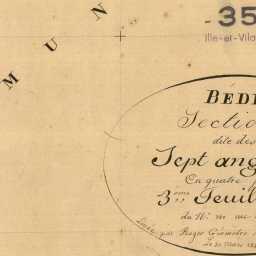 MUN
35
Ille-et-Vila
BÉDE
Sectio
dite des
Sept ang
En quatre
3eme Feuil
du No
par Roger Géomètre
Le 30 Mars